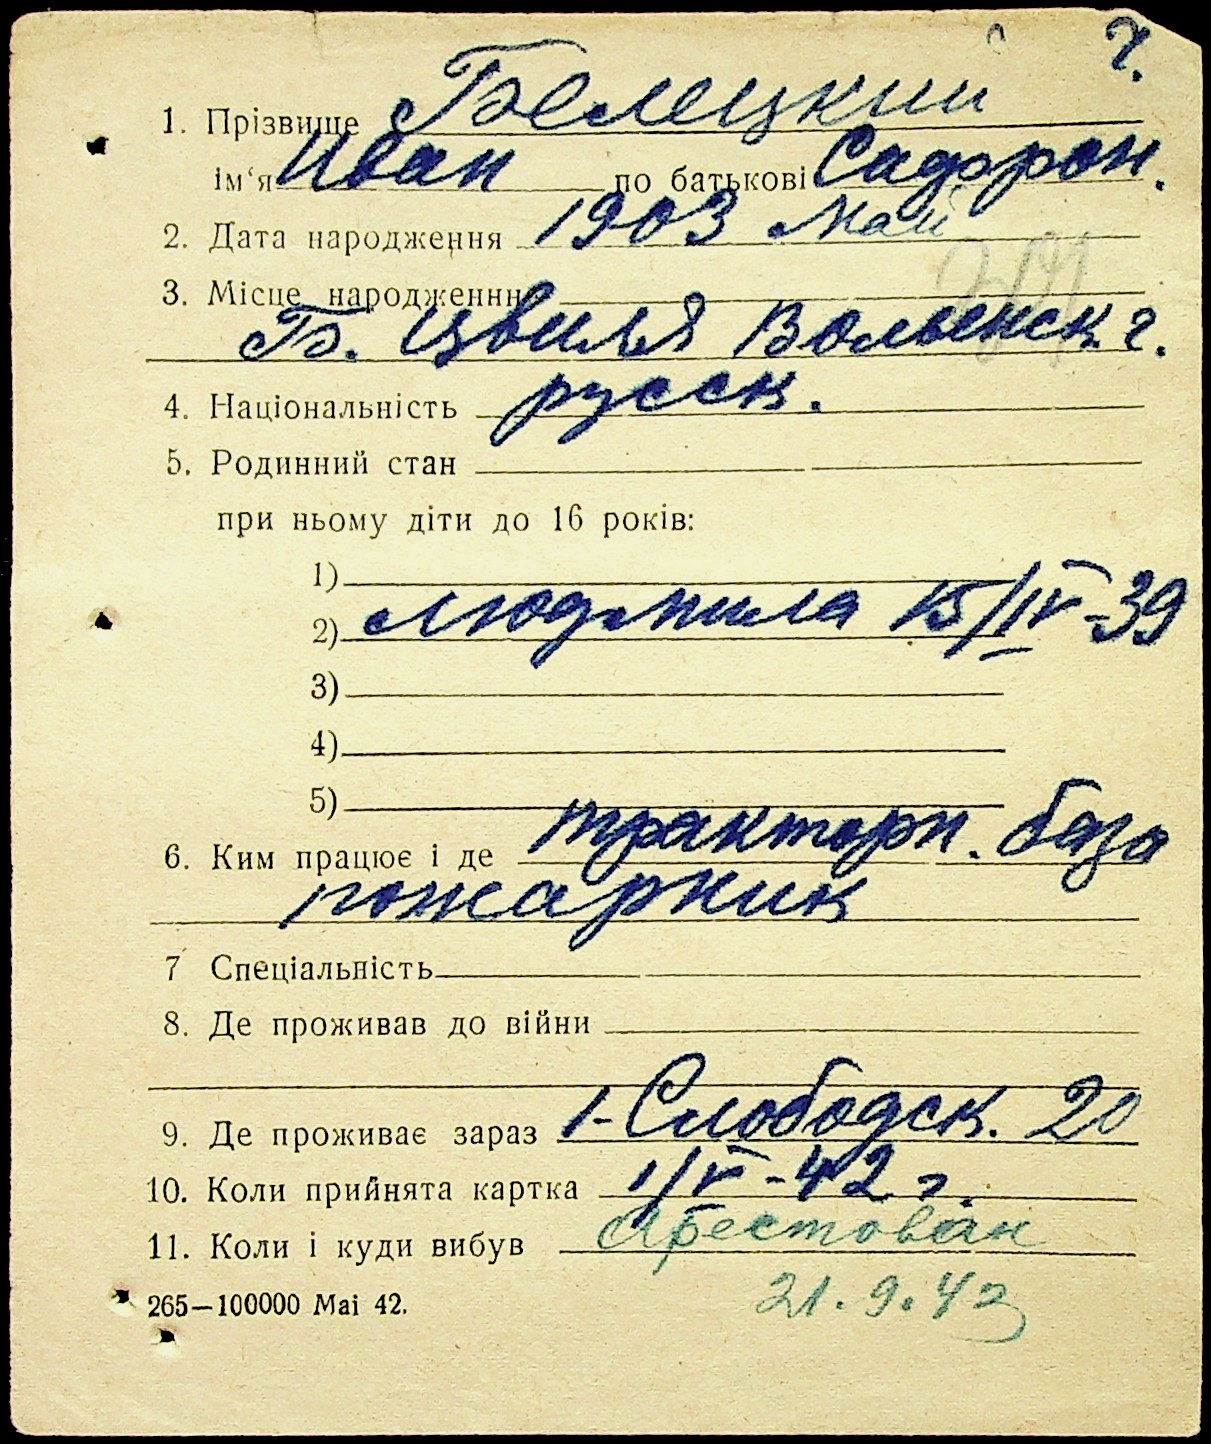 Ч.
1. Прізвище Белецкий
ім'я Иван по батькові Садорон.
2. Дата народження 1903 май
3. Місце народженнн
Б. Цвиля Волынск. г.
4. Національність русск.
5. Родинний стан
при ньому діти до 16 років:
1)
2) Людмила 15/IV-39
3)
4)
5)
6. Ким працює і де тракторн. база
пожарник
7 Спеціальність
8. Де проживав до війни
9. Де проживає зараз 1-Слободск. 20
10. Коли прийнята картка 1/V-42 г.
11. Коли і куди вибув Арестован
21.9.42
265—100000 Маі 42.